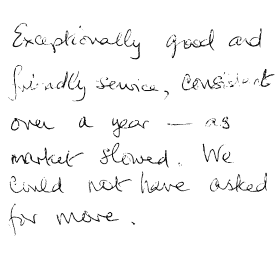 Exceptionally good and
friendly service, consistent
over a year — as
market slowed. We
could not have asked
for more.